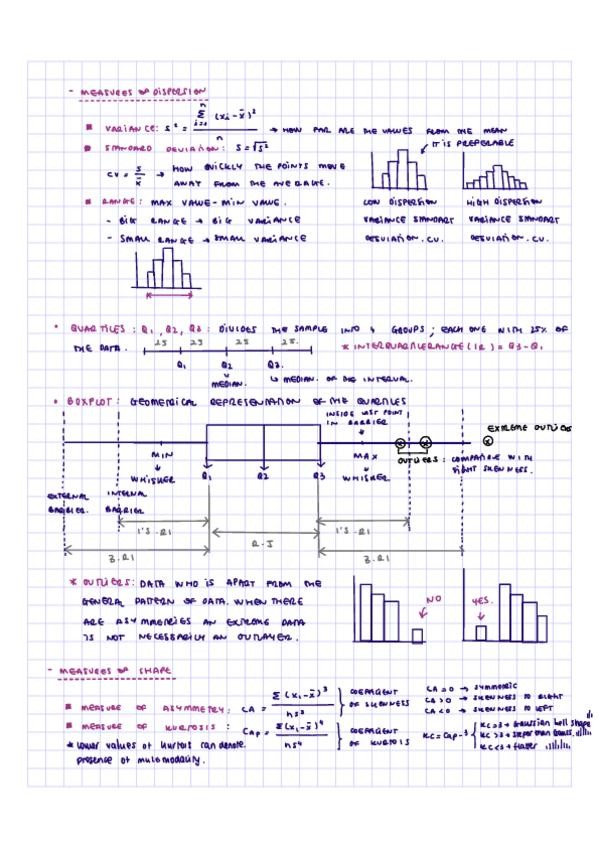 - MEASURES OF DISPERSION
■ VARIANCE: S² = Σ (xi - x̄)² / n → HOW FAR ARE THE VALUES FROM THE MEAN
i=1 n
■ STANDARD DEVIATION: S = √S²
IT IS PREFERABLE
CV = S / x̄ → HOW QUICKLY THE POINTS MOVE
AWAY FROM THE AVERAGE.
■ RANGE: MAX VALUE - MIN VALUE.
- BIG RANGE → BIG VARIANCE
- SMALL RANGE → SMALL VARIANCE
LOW DISPERSION
VARIANCE STANDART
DESVIATION. CV.
HIGH DISPERSION
VARIANCE STANDART
DESVIATION. CV.
• QUARTILES: Q1, Q2, Q3: DIVIDES THE SAMPLE INTO 4 GROUPS; EACH ONE WITH 25% OF
THE DATA.
25 25 25 25.
* INTERQUARTILE RANGE (IR) = Q3 - Q1
Q1 Q2 Q3.
MEDIAN. ↳ MEDIAN. OF THE INTERVAL.
• BOXPLOT: GEOMETRICAL REPRESENTATION OF THE QUARTILES
INSIDE LAST POINT
IN BARRIER
EXTREME OUTLIERS
MIN MAX
OUTLIERS: COMPATIBLE WITH
RIGHT SKEWNESS.
WHISKER Q1 Q2 Q3 WHISKER
EXTERNAL BARRIER.
INTERNAL BARRIER
1'5 · RI 1'5 · RI
3 · RI 3 · RI
* OUTLIERS: DATA WHO IS APART FROM THE
GENERAL PATTERN OF DATA. WHEN THERE
ARE ASYMMETRIES AN EXTREME DATA
IS NOT NECESSARILY AN OUTLAYER.
NO
YES.
- MEASURES OF SHAPE
■ MEASURE OF ASYMMETRY: CA = Σ (xi - x̄)³ / nS³ } COEFICIENT
OF SKEWNESS
CA = 0 → SYMMETRIC
CA > 0 → SKEWNESS TO RIGHT
CA < 0 → SKEWNESS TO LEFT
■ MEASURE OF KURTOSIS: CAp = Σ(xi - x̄)⁴ / nS⁴ } COEFICIENT
OF KURTOSIS
KC = CAp - 3
KC = 0 → Gaussian bell shape
KC > 0 → steeper than Gauss.
KC < 0 → flatter
* Lower values of kurtosis can denote
presence of multimodality.